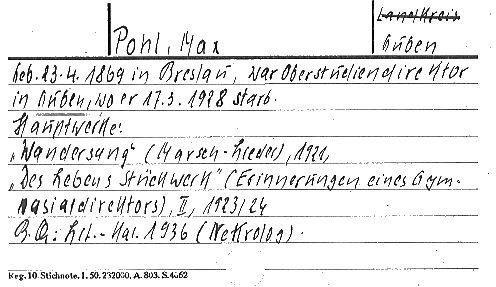 Landkreis
Pohl, Max
Guben
Geb. 23.4.1869 in Breslau, war Oberstudiendirektor
in Guben, wo er 17.3.1928 starb.
Hauptwerke:
„Wandersang“ (Marsch-Lieder), 1921,
„Des Lebens Stückwerk“ (Erinnerungen eines Gym-
nasialdirektors), II, 1923/24
Lit.-Kal. 1936 (Nekrolog).
Reg. 10 Stichnote. I. 50. 232000. A. 803. S. 4662